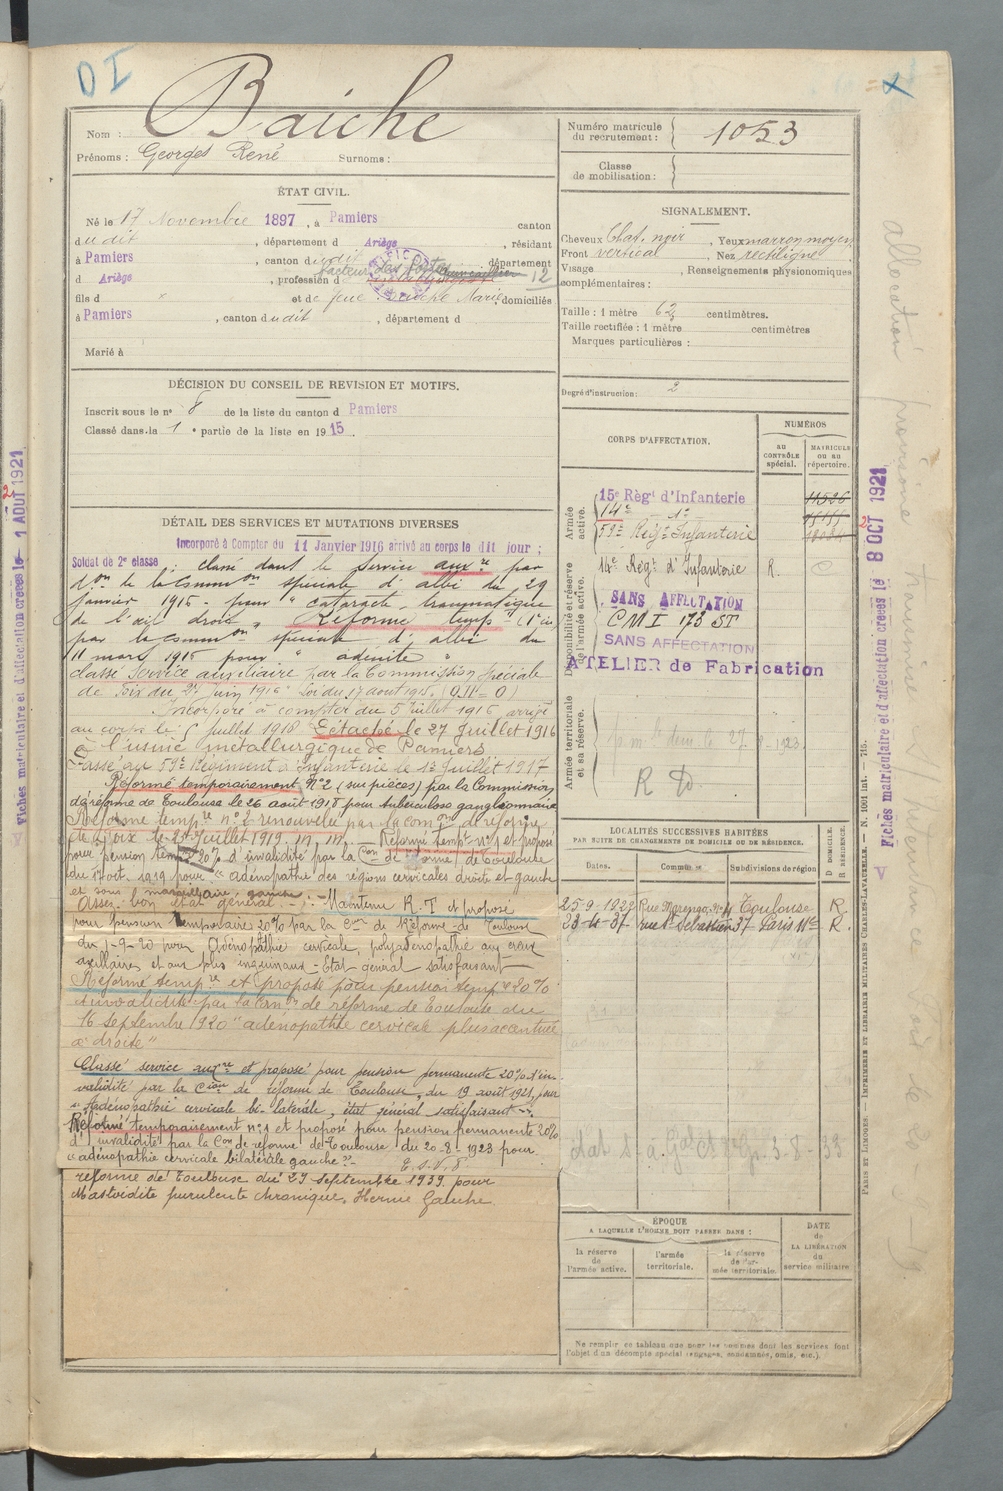 D I
Nom : Baiche
Prénoms : Georges René Surnoms :
Numéro matricule du recrutement : 1053
Classe de mobilisation :
ÉTAT CIVIL.
Né le 17 Novembre 1897, à Pamiers canton
dudit, département d Ariège, résidant
à Pamiers, canton dudit, département
d Ariège, profession de facteur des Postes 12
fils d × et de feue Baiche Marie, domiciliés
à Pamiers, canton dudit, département d
Marié à
SIGNALEMENT.
Cheveux Chat. noir, Yeux marron moyen
Front vertical, Nez rectiligne
Visage , Renseignements physionomiques
complémentaires :
Taille : 1 mètre 62 centimètres.
Taille rectifiée : 1 mètre centimètres
Marques particulières :
Degré d'instruction : 2
DÉCISION DU CONSEIL DE REVISION ET MOTIFS.
Inscrit sous le n° 8 de la liste du canton d Pamiers
Classé dans la 1e partie de la liste en 1915.
DÉTAIL DES SERVICES ET MUTATIONS DIVERSES
Incorporé à Compter du 11 Janvier 1916 arrivé au corps le dit jour ;
Soldat de 2e classe : classé dans le service auxre par
don de la Common spéciale d'albi du 29
janvier 1916 - pour " cataracte traumatique
de l'œil droit " Réformé tempt
par la Common spéciale d'albi du
11 mars 1916 pour " adénite "
Classé service auxiliaire par la Commission Spéciale
de Foix du 2 Juin 1916 Loi du 17 aout 1915.
Incorporé à compter du 5 Juillet 1916 arrivé
au corps le 5 juillet 1916 Détaché le 27 Juillet 1916
à l'usine métallurgique de Pamiers
Passé au 59e Régiment d'Infanterie le 1er Juillet 1917
Réformé temporairement N°2 (sur pièces) par la Commission
de réforme de Toulouse le 26 août 1918 pour tuberculose ganglionnaire
Réforme tempre n° 2 renouvelée par la Comon de réforme
de Foix le 2 Juillet 1919 Réformé tempt n°1 et proposé
pour pension tempre 20% d'invalidité par la Con de réforme de Toulouse
du 1er oct. 1919 pour "adénopathie des régions cervicales droite et gauche
et sous maxillaire gauche
Assez bon état général. - Maintenu R.T et proposé
pour pension temporaire 20% par la Con de Réforme de Toulouse
du 1-9-20 pour Adénopathie cervicale, polyadénopathie aux creux
axillaires et aux plis inguinaux - Etat général satisfaisant
Réformé tempre et proposé pour pension tempre 20%
d'invalidité par la Con de réforme de Toulouse du
16 septembre 1920 "adénopathie cervicale plus accentuée
à droite"
Classé service auxre et proposé pour pension permanente 20% d'in-
validité par la Cion de réforme de Toulouse du 19 août 1921, pour
"Adénopathie cervicale bi-latérale, état général satisfaisant"
Réformé temporairement n°1 et proposé pour pension permanente 20%
d'invalidité par la Con de réforme de Toulouse du 20-8-1923 pour
"adénopathie cervicale bilatérale gauche"
réforme de Toulouse du 29 septembre 1939 pour
Mastoïdite purulente chronique. Hernie Gauche.
CORPS D'AFFECTATION.
NUMÉROS
AU CONTRÔLE spécial.
MATRICULE ou au répertoire.
Armée active.
15e Régt d'Infanterie
14e — d° —
59e Régt Infanterie
Disponibilité et réserve de l'armée active.
14e Régt d'Infanterie R.
SANS AFFECTATION
CMI 173 ST
SANS AFFECTATION
ATELIER de Fabrication
Armée territoriale et sa réserve.
R D
LOCALITÉS SUCCESSIVES HABITÉES
PAR SUITE DE CHANGEMENTS DE DOMICILE OU DE RÉSIDENCE.
D DOMICILE. R RÉSIDENCE.
Dates. Communes Subdivisions de région
25-9-1929 Rue Marengo Toulouse R.
23-4-37 rue St Sébastien 37 Paris 11e R.
ÉPOQUE
A LAQUELLE L'HOMME DOIT PASSER DANS :
la réserve de l'armée active.
l'armée territoriale.
la réserve de l'armée territoriale.
DATE de LA LIBÉRATION du service militaire
Ne remplir ce tableau que pour les hommes dont les services font
l'objet d'un décompte spécial (engagés, condamnés, omis, etc.).
PARIS ET LIMOGES. — IMPRIMERIE ET LIBRAIRIE MILITAIRES CHARLES-LAVAUZELLE. — N. 1001 int. — 715.
Fiches matriculaire et d'affectation créées le 8 OCT 1921
Fiches matriculaire et d'affectation créées le 1 AOUT 1921